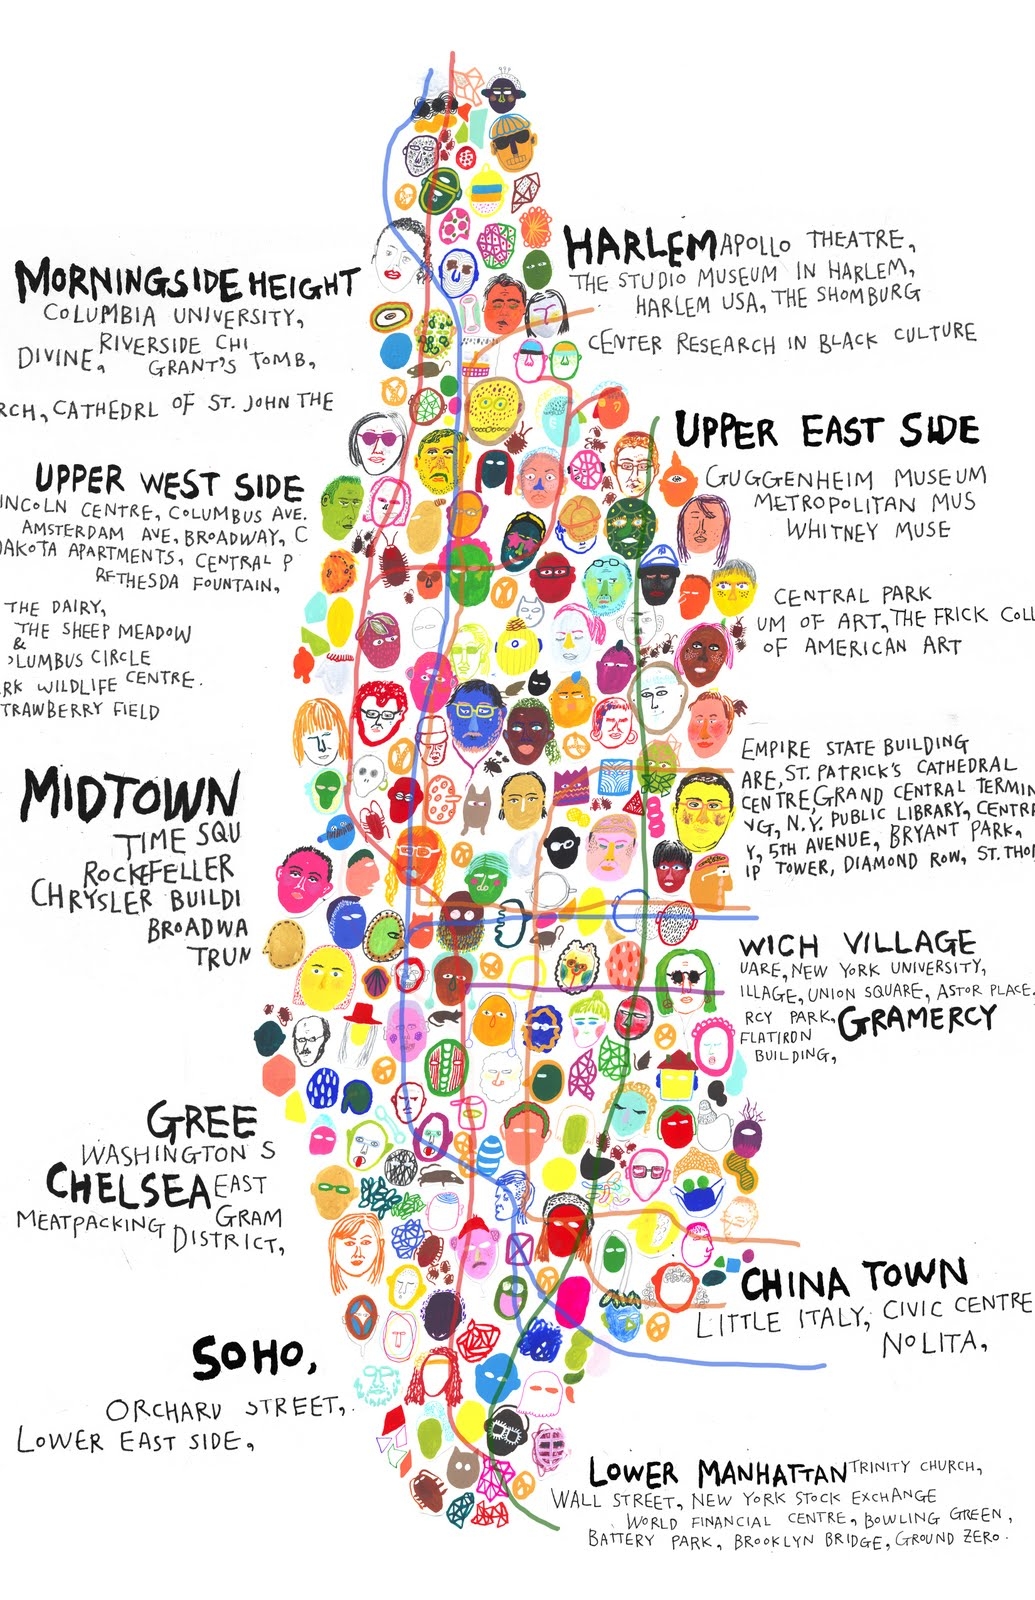 HARLEM APOLLO THEATRE,
THE STUDIO MUSEUM IN HARLEM,
HARLEM USA, THE SHOMBURG
CENTER RESEARCH IN BLACK CULTURE
MORNINGSIDE HEIGHT
COLUMBIA UNIVERSITY,
RIVERSIDE CHI
DIVINE, GRANT'S TOMB,
RCH, CATHEDRL OF ST. JOHN THE
UPPER EAST SIDE
GUGGENHEIM MUSEUM
METROPOLITAN MUS
WHITNEY MUSE
CENTRAL PARK
UM OF ART, THE FRICK COLL
OF AMERICAN ART
UPPER WEST SIDE
INCOLN CENTRE, COLUMBUS AVE.
AMSTERDAM AVE, BROADWAY, C
DAKOTA APARTMENTS, CENTRAL P
BETHESDA FOUNTAIN,
THE DAIRY,
THE SHEEP MEADOW
&
OLUMBUS CIRCLE
RK WILDLIFE CENTRE.
TRAWBERRY FIELD
MIDTOWN
TIME SQU
ROCKEFELLER
CHRYSLER BUILDI
BROADWA
TRUN
EMPIRE STATE BUILDING
ARE, ST. PATRICK'S CATHEDRAL
CENTRE, GRAND CENTRAL TERMIN
NG, N.Y. PUBLIC LIBRARY, CENTRA
Y, 5TH AVENUE, BRYANT PARK,
IP TOWER, DIAMOND ROW, ST. THO
WICH VILLAGE
UARE, NEW YORK UNIVERSITY,
ILLAGE, UNION SQUARE, ASTOR PLACE.
RCY PARK, GRAMERCY
FLATIRON
BUILDING,
GREE
WASHINGTON S
CHELSEA EAST
MEATPACKING GRAM
DISTRICT,
CHINA TOWN
LITTLE ITALY, CIVIC CENTRE
NOLITA,
SOHO,
ORCHARD STREET,
LOWER EAST SIDE,
LOWER MANHATTAN TRINITY CHURCH,
WALL STREET, NEW YORK STOCK EXCHANGE
WORLD FINANCIAL CENTRE, BOWLING GREEN,
BATTERY PARK, BROOKLYN BRIDGE, GROUND ZERO.